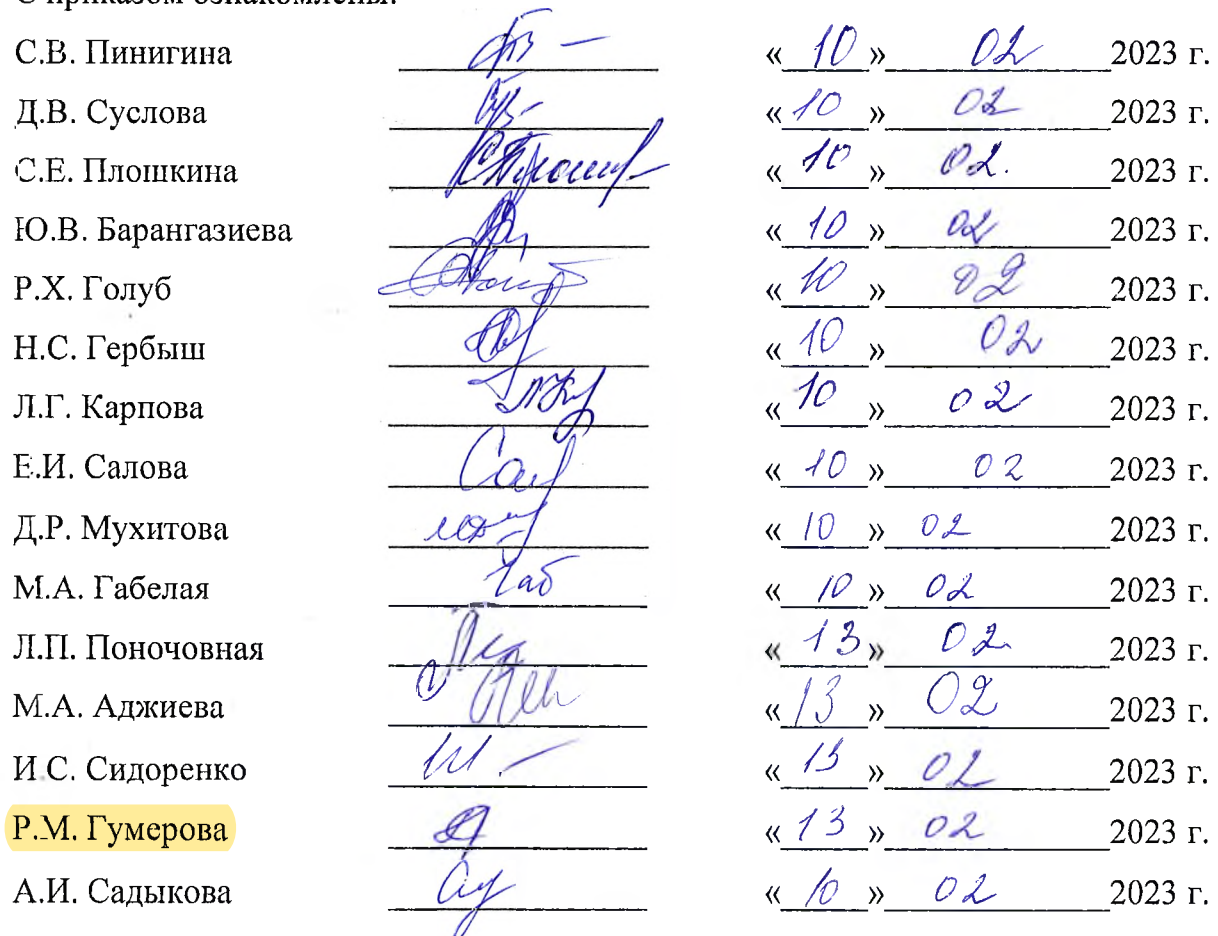 С приказом ознакомлены:
С.В. Пинигина «10» 02 2023 г.
Д.В. Суслова «10» 02 2023 г.
С.Е. Плошкина «10» 02. 2023 г.
Ю.В. Барангазиева «10» 02 2023 г.
Р.Х. Голуб «10» 02 2023 г.
Н.С. Гербыш «10» 02 2023 г.
Л.Г. Карпова «10» 02 2023 г.
Е.И. Салова «10» 02 2023 г.
Д.Р. Мухитова «10» 02 2023 г.
М.А. Габелая Габ «10» 02 2023 г.
Л.П. Поночовная «13» 02 2023 г.
М.А. Аджиева «13» 02 2023 г.
И.С. Сидоренко «13» 02 2023 г.
Р.М. Гумерова «13» 02 2023 г.
А.И. Садыкова «10» 02 2023 г.